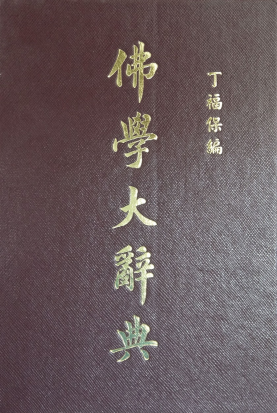 丁福保編
佛學大辭典